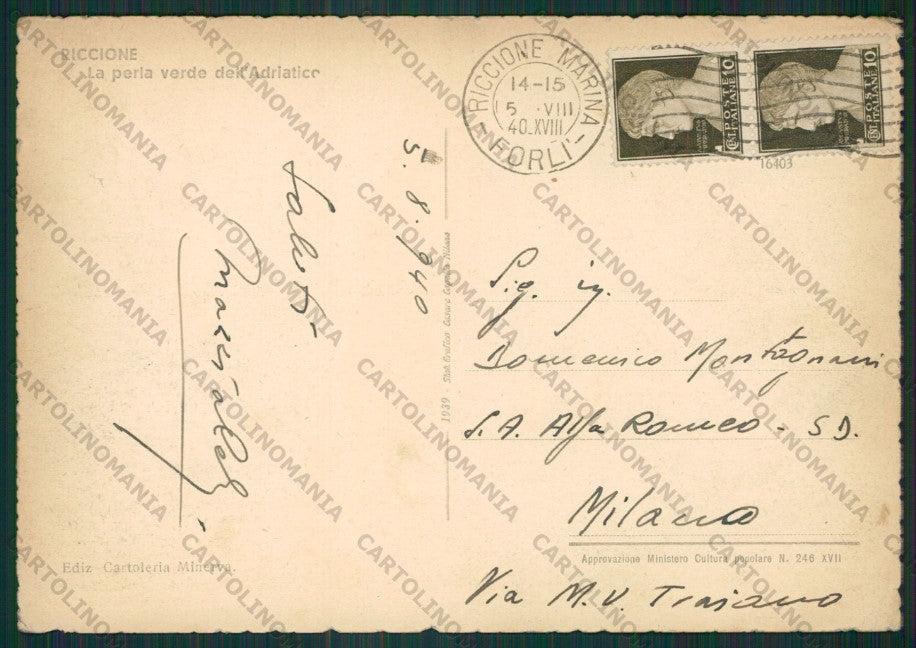 RICCIONE
La perla verde dell'Adriatico
RICCIONE MARINA
14-15
5 .VIII
40.XVIII
- FORLI' -
POSTE ITALIANE
CENT. 10
POSTE ITALIANE
CENT. 10
16403
5.8.940
Saluti
1939 Stab. Grafico Cesare Milano
Sig. ing.
Domenico
S.A. Alfa Romeo - S.D.
Milano
Approvazione Ministero Cultura popolare N. 246 XVII
Via M.U. Traiano
Ediz. Cartoleria Minerva.
CARTOLINOMANIA